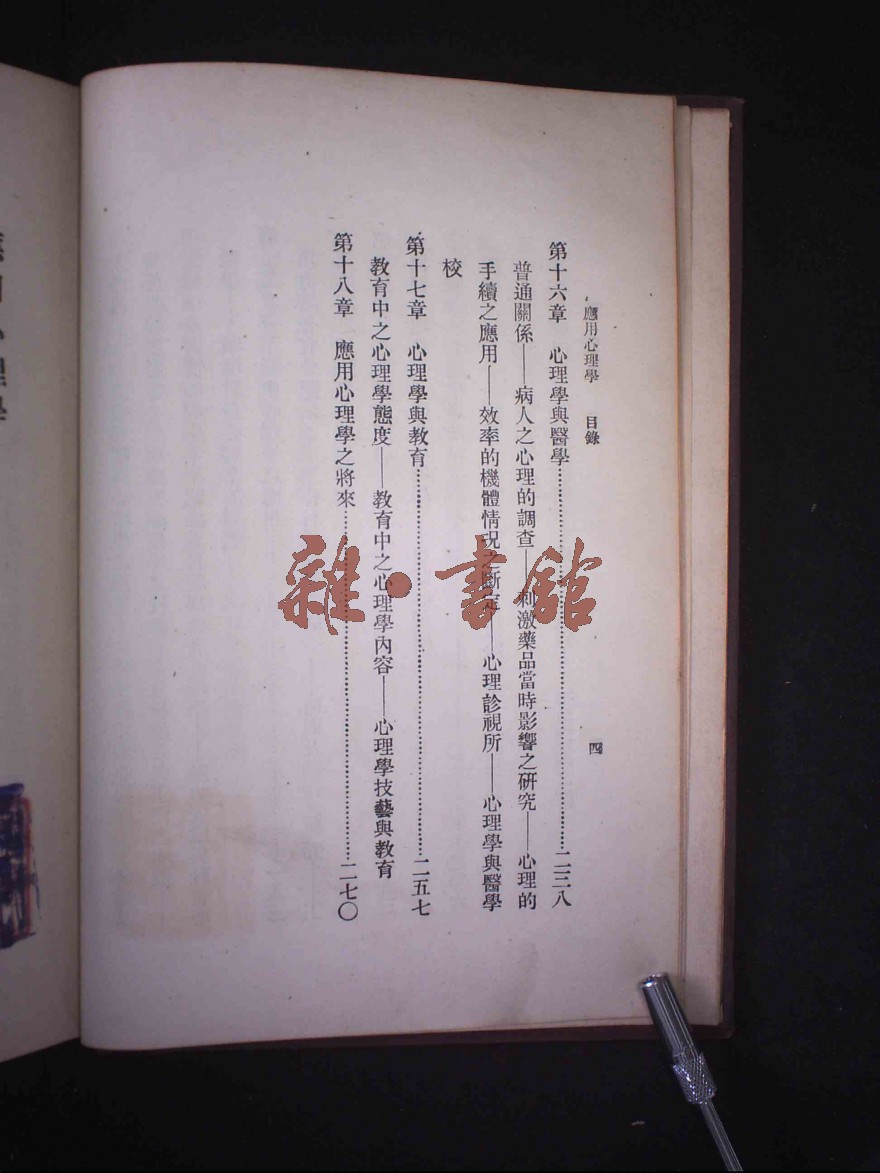 應用心理學 目錄 四
第十六章 心理學與醫學……二三八
普通關係——病人之心理的調查——刺激藥品當時影響之研究——心理的
手續之應用——效率的機體情況之斷定——心理診視所——心理學與醫學
校
第十七章 心理學與教育……二五七
教育中之心理學態度——教育中之心理學內容——心理學技藝與教育
第十八章 應用心理學之將來……二七〇
雜·書館